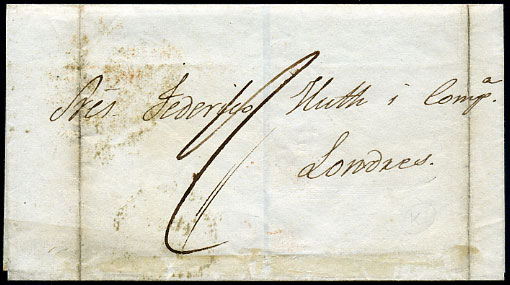 Sres. Federico Huth i Compª.
Londres.